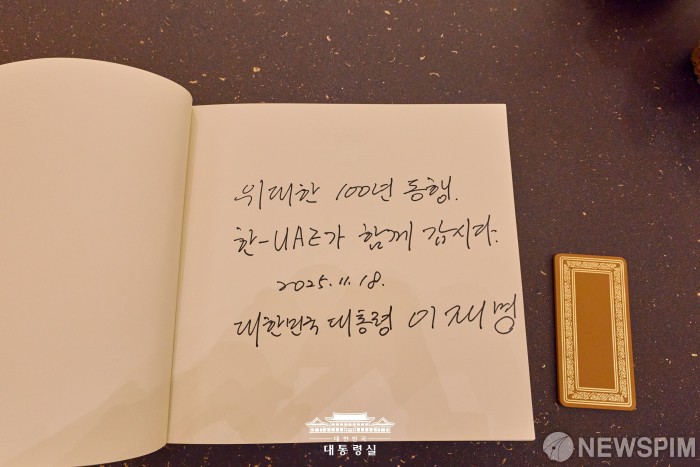 위대한 100년 동행.
한-UAE가 함께 갑시다.
2025.11.18.
대한민국 대통령 이재명
대한민국
대통령실
NEWSPIM